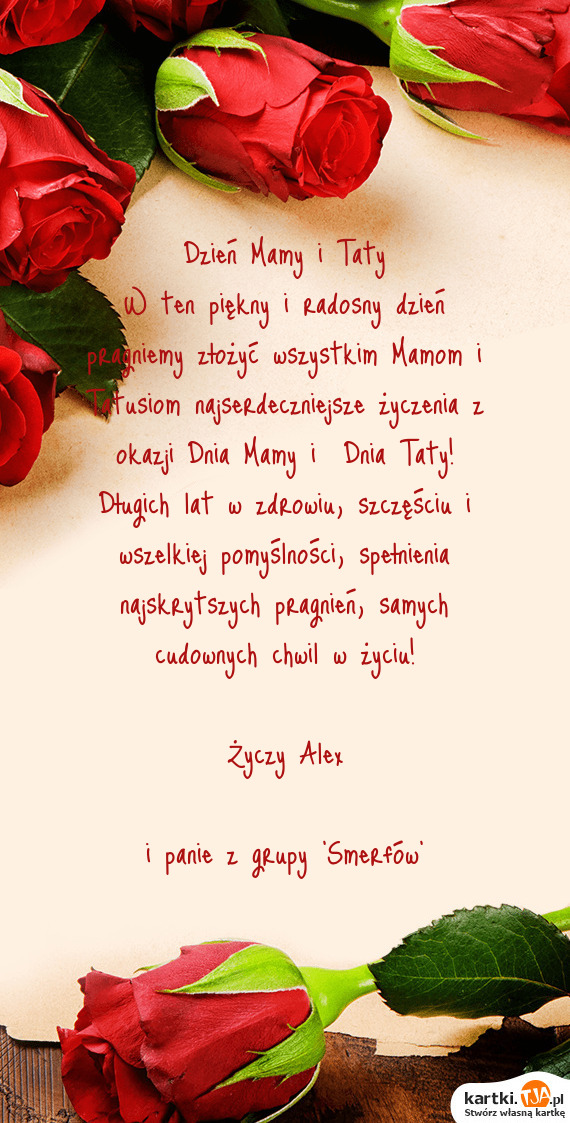 Dzień Mamy i Taty
W ten piękny i radosny dzień
pragniemy złożyć wszystkim Mamom i
Tatusiom najserdeczniejsze życzenia z
okazji Dnia Mamy i  Dnia Taty!
Długich lat w zdrowiu, szczęściu i
wszelkiej pomyślności, spełnienia
najskrytszych pragnień, samych
cudownych chwil w życiu!
Życzy Alex
i panie z grupy 'Smerfów'
kartki.TJA.pl
Stwórz własną kartkę